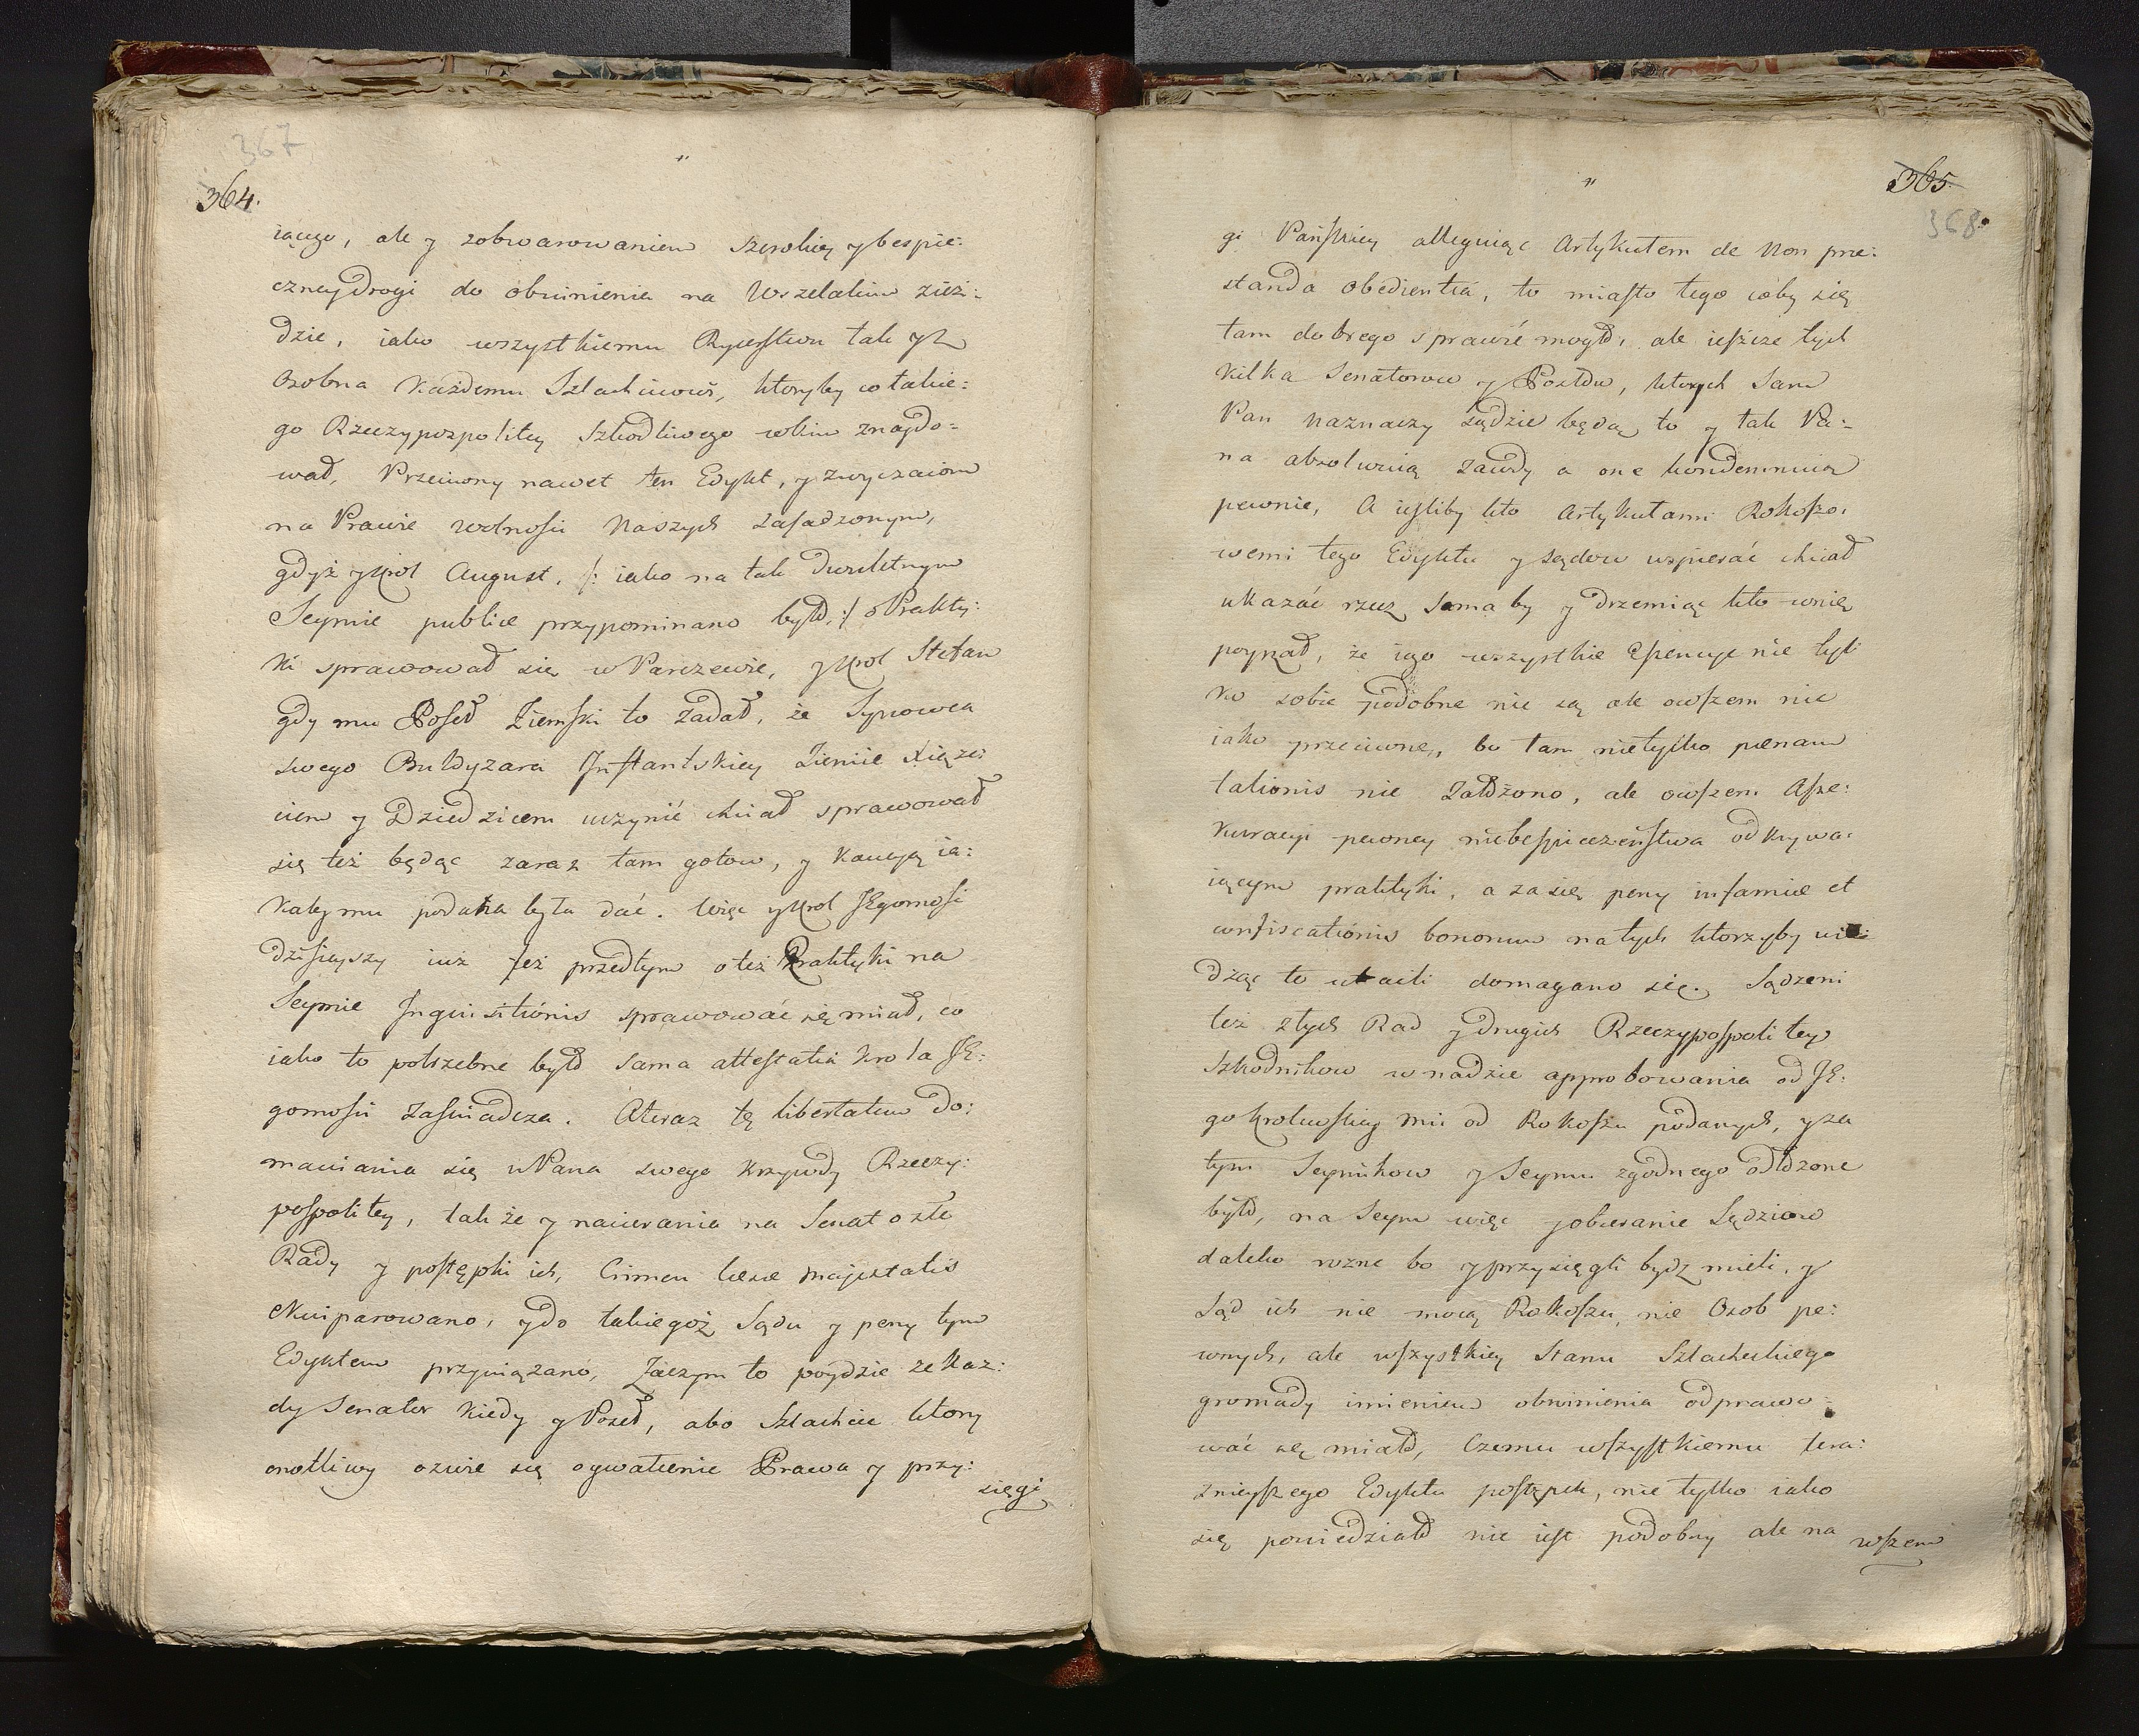 367
364.
iącego, ale y zobwarowaniem szerokiey y bespie:
czney drogi do obwinienia na Wszelakim ziezi:
dzie, iako wszystkiemu Rycerstwu tak y z
Osobna Każdemu Szlachcicowi, ktoryby co takie:
go Rzeczypospolitey szkodliwego w kim znaydo=
wał, Przeciwny nawet ten Edykt, y zwyczaiom
na Prawie wolności Naszych zasadzonym,
gdyż y Krol August, /: iako na tak dwuletnym
Seymie publice przypominano było, :/ o Prakty:
ki sprawował się w Parczewie, y Krol Stefan
gdy mu Poseł Ziemski to zadał, że Synowca
swego Baltyzara Inflantskiey Ziemie Xiąże:
ciem y Dziedzicem uczynić chciał sprawował
się też będąc zaraz tam gotow, y kaucyą ia:
kaby mu podana była dać. Więc y Krol JEgomość
dzisieyszy iuż też przedtym o też Praktyki na
Seymie Inquisitionis sprawować się miał, co
iako to potrzebne było sama attestatia Krola JE:
gomości zaświadcza. A teraz tę libertatem do:
mawiania się u Pana swego krzywdy Rzeczy:
pospolitey, tak że y nacierania na Senat o złe
Rady y postępki ich, Crimen laesae Majestatis
Ekwiparowano, y do takiegoż Sądu y peny tym
Edyktem przywiązano, Zaczym to poydzie że Każ:
dy Senator kiedy y Poseł, abo Szlachcic ktory
cnotliwy ozwie się o gwałcenie Prawa y przy:
sięgi
365.
368
gi Pańskiey alleguiąc Artykułem de Non prae:
standa obedientia, to miasto tego coby się
tam dobrego sprawić mogło, ale ieszcze tych
kilka Senatorow y Posłow, ktorych sam
Pan naznaczy sądzić będą, to y tak Pa:
na absolwuią zawdy a one kondemnuią
pewnie, A iesliby kto Artykułami Rokoszo:
wemi tego Edyktu y sądow wspierać chciał
ukazać rzecz sama by y drzemiąc kto w nię
poyrzał, że iego wszystkie Esencye nie tyl:
ko sobie podobne nie są ale owszem nie
iako przeciwne, bo tam nietylko paenam
talionis nie założono, ale owszem Asse:
kuracyi pewney niebespieczeństwa odkrywa:
iącym praktyki, a zasię peny infamiae et
confiscationis bonorum na tych ktorzyby wi:
dząc to utaili domagano się. Sądzeni
też złych Rad y drugich Rzeczypospolitey
Szkodnikow w nadzie approbowania od JE:
go Krolewskiey Mci od Rokoszu podanych, y za
tym Seymikow y Seymu zgodnego odłożone
było, na Seym więc y obieranie Sędziow
daleko rozne bo y przysięgli bydz mieli, y
Sąd ich nie mocą Rokoszu, nie Osob pe:
wnych, ale wszystkiey Stanu Szlacheckiego
gromady imieniem obwinienia odprawo:
wać się miało, Czemu wszystkiemu tera:
znieyszego Edyktu postępek, nie tylko iako
się powiedziało nie iest podobny ale na
wszem